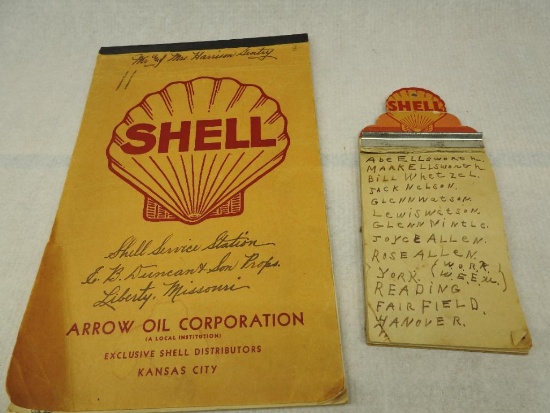 Mr & Mrs Harrison Gentry
11
SHELL
Shell Service Station
E. B. Duncan & Son Props.
Liberty, Missouri
ARROW OIL CORPORATION
(A LOCAL INSTITUTION)
EXCLUSIVE SHELL DISTRIBUTORS
KANSAS CITY
SHELL
Abe ELLsworth.
MARK ELLsworth
Bill Whetzel.
JACK Nelson.
GLenn Watson.
Lewis Watson.
GLenn
JOYCE ALLEN.
ROSE ALLEN.
YORK. (WORK,
READING
FAIRFIELD.
HANOVER.